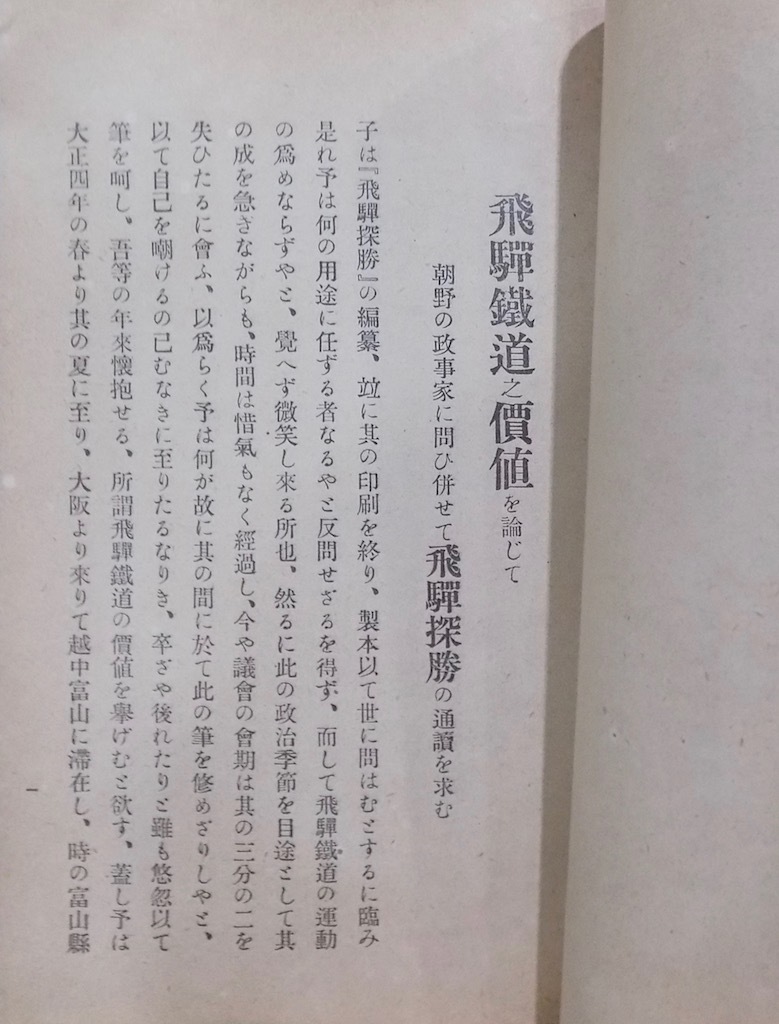 飛驒鐵道之價値を論じて
朝野の政事家に問ひ併せて飛驒探勝の通讀を求む
子は『飛驒探勝』の編纂、竝に其の印刷を終り、製本以て世に問はむとするに臨み
是れ予は何の用途に任ずる者なるやと反問せざるを得ず、而して飛驒鐵道の運動
の爲めならずやと、覺へず微笑し來る所也、然るに此の政治季節を目途として其
の成を急ぎながらも、時間は惜氣もなく經過し、今や議會の會期は其の三分の二を
失ひたるに會ふ、以爲らく予は何が故に其の間に於て此の筆を修めざりしやと、
以て自己を嘲けるの已むなきに至りたるなりき、卒ざや後れたりと雖も悠忽以て
筆を呵し、吾等の年來懷抱せる、所謂飛驒鐵道の價値を擧げむと欲す、蓋し予は
大正四年の春より其の夏に至り、大阪より來りて越中富山に滯在し、時の富山縣
一